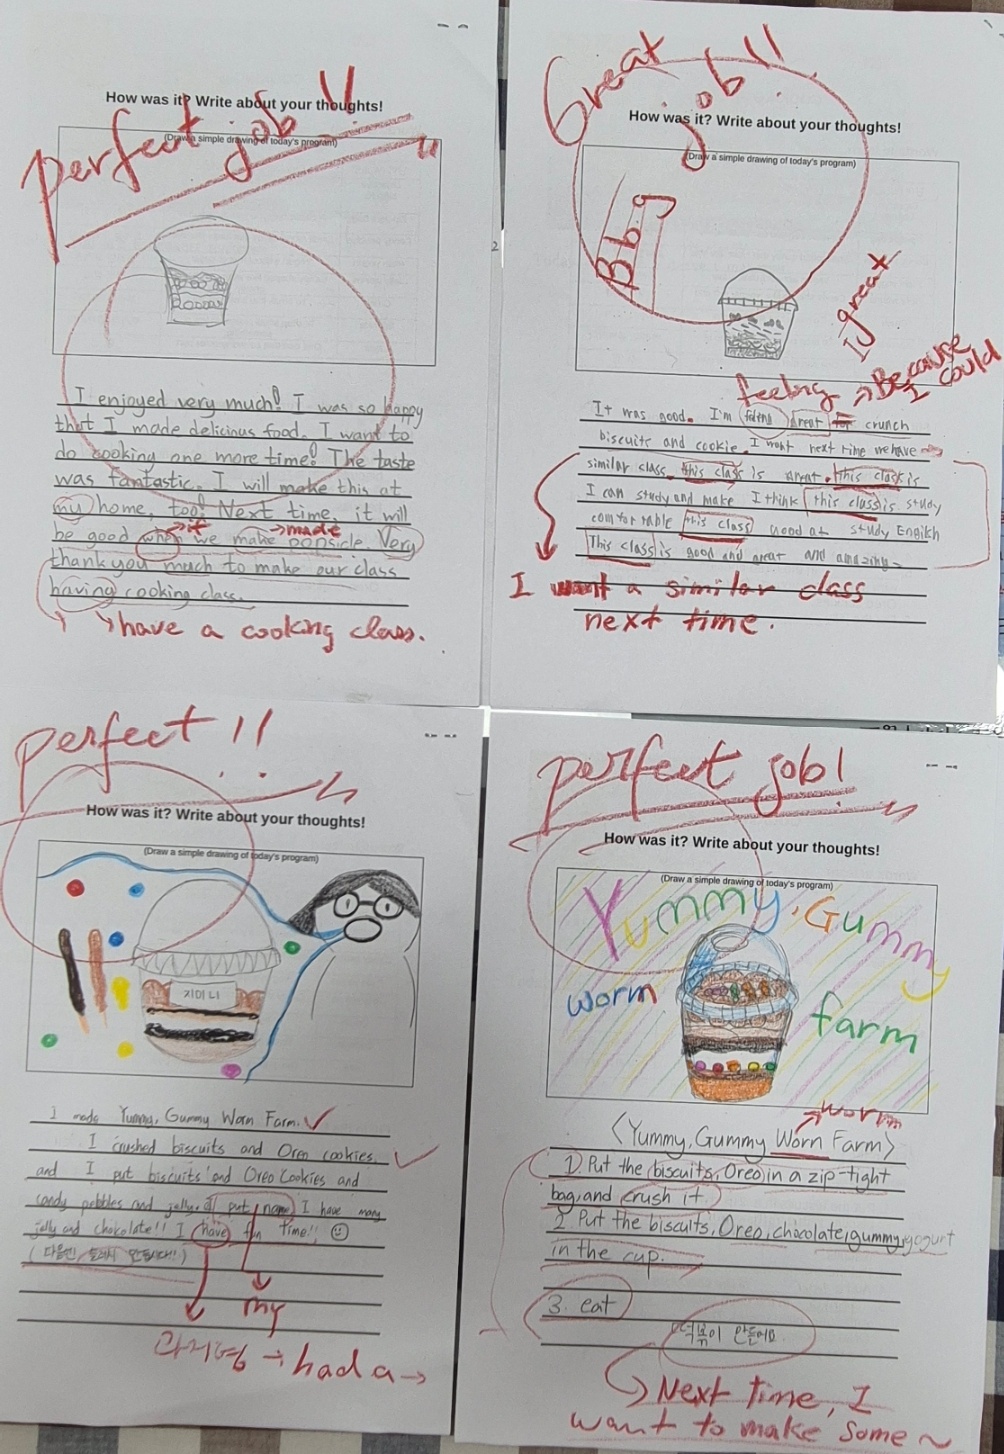 perfect job!!
How was it? Write about your thoughts!
(Draw a simple drawing of today's program)
I enjoyed very much! I was so happy
that I made delicious food. I want to
do cooking one more time! The taste
was fantastic. I will make this at
my home, too! Next time, it will
→if →made
be good when we make popsicle. Very
thank you much to make our class
having cooking class.
have a cooking class.
Great job!!
How was it? Write about your thoughts!
(Draw a simple drawing of today's program)
2
great
Because
I could
feeling
It was good. I'm great for crunch
biscuits and cookie. I want next time we have
similar class. this class is great. this class is
I can study and make I think this class is study
comfortable this class good at study
This class is good and great and amazing
I want a similar class
next time.
perfect!!
How was it? Write about your thoughts!
(Draw a simple drawing of today's program)
지미니
I made Yummy, Gummy Worm Farm.
I crushed biscuits and Oreo cookies.
and I put biscuits and Oreo Cookies and
candy pebbles and jelly. I put name I have many
jelly and chocolate!! I have fun time!!
my
과거형 → had a →
perfect job!
How was it? Write about your thoughts!
(Draw a simple drawing of today's program)
Yummy, Gummy
worm farm
worm
<Yummy, Gummy Worn Farm>
1) Put the biscuits, Oreo in a zip-tight
bag, and crush it
2 Put the biscuits, Oreo, chocolate, gummy, yogurt
in the cup.
3. eat
떡볶이 만들어요
Next time, I
want to make some ~